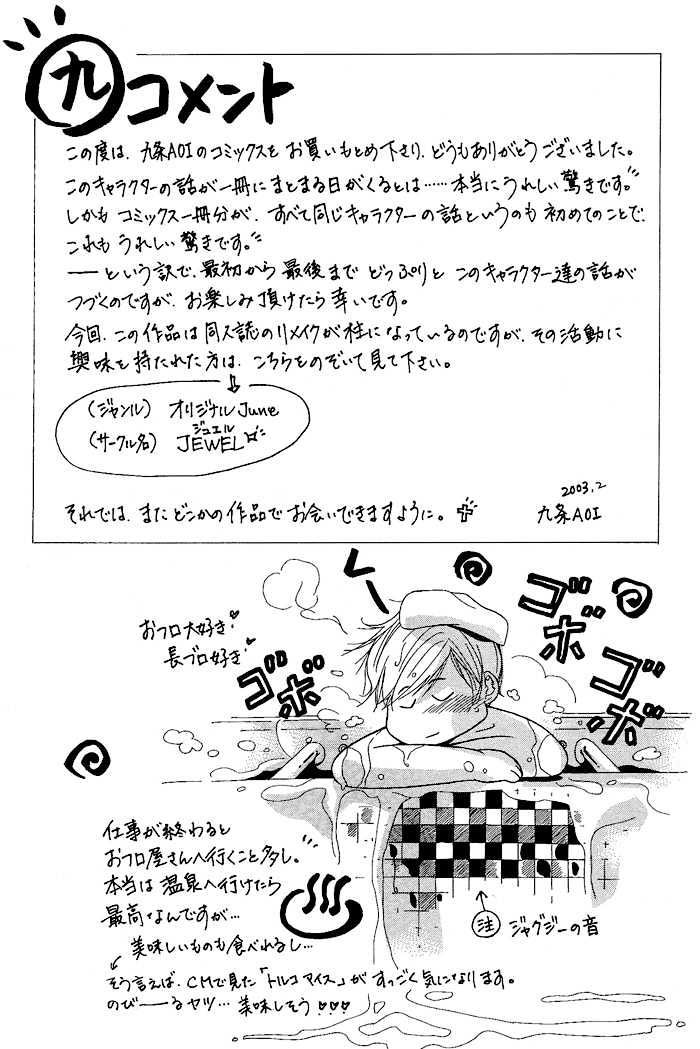 九コメント
この度は、九条AOIのコミックスをお買いもとめ下さり、どうもありがとうございました。
このキャラクターの話が一冊にまとまる日がくるとは……本当にうれしい驚きです。
しかもコミックス一冊分が、すべて同じキャラクターの話というのも初めてのことで、
これもうれしい驚きです。
――という訳で、最初から最後までどっぷりとこのキャラクター達の話が
つづくのですが、お楽しみ頂けたら幸いです。
今回、この作品は同人誌のリメイクが柱になっているのですが、その活動に
興味を持たれた方は、こちらをのぞいて見て下さい。
(ジャンル) オリジナルJune
ジュエル
(サークル名) JEWEL
2003.2
それでは、またどこかの作品でお会いできますように。 九条AOI
おフロ大好き♥
長ブロ好き♥
ゴボ
ゴボ
ゴボ
仕事が終わると
おフロ屋さんへ行くこと多し。
本当は温泉へ行けたら
最高なんですが…
美味しいものも食べれるし…
注 ジャグジーの音
そう言えば、CMで見た「トルコアイス」がすっごく気になります。
のび――るヤツ…美味しそう♥♥♥